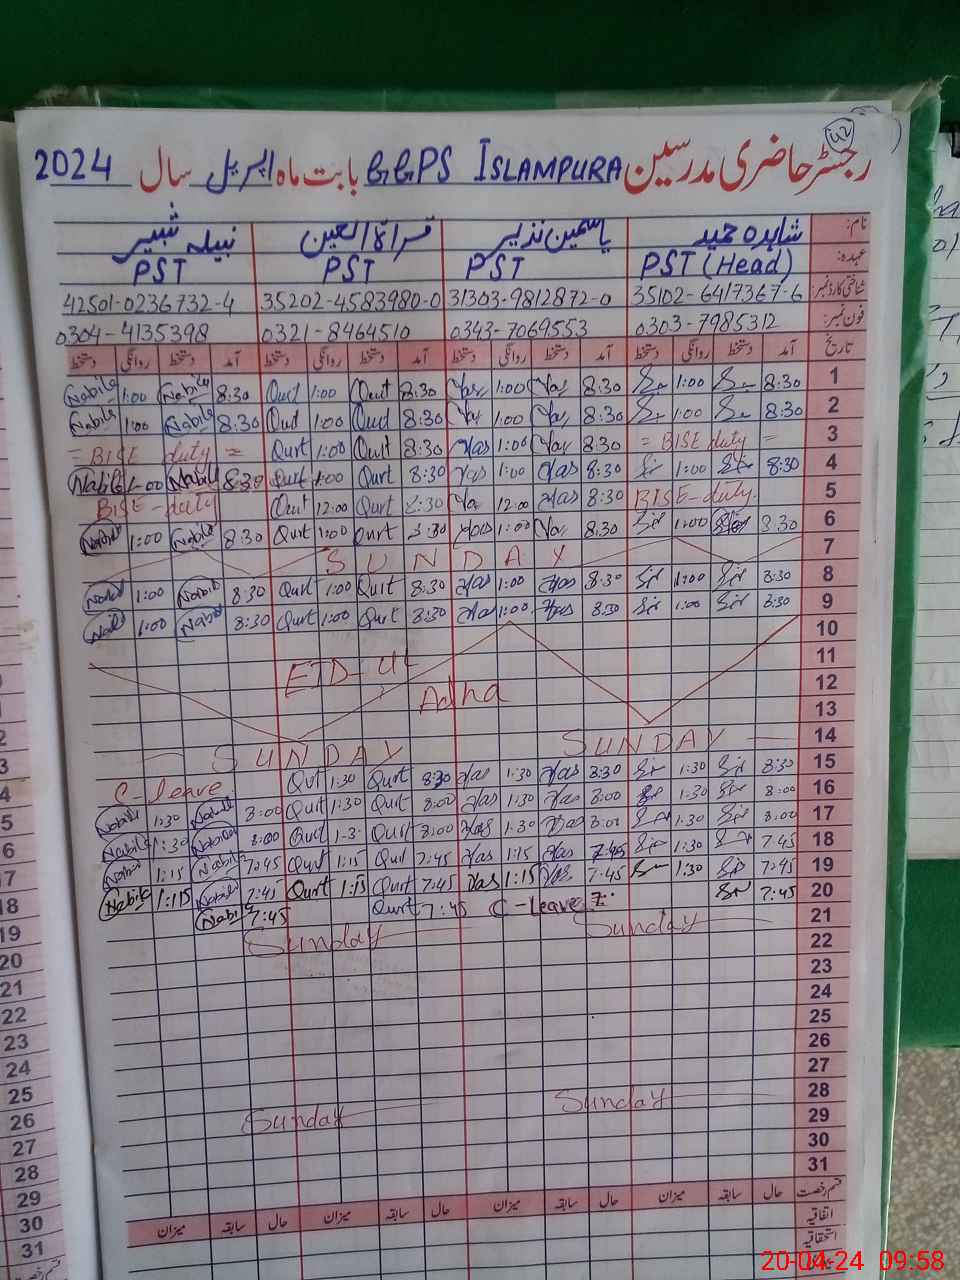 42
رجسٹر حاضری مدرسین GGPS ISLAMPURA بابت ماہ اپریل سال 2024
نام: شاہدہ حمید یاسمین نذیر قراۃ العین نبیلہ شبیر
عہدہ: PST (Head) PST PST PST
شناختی کارڈ نمبر: 35102-6417367-6 31303-9812872-0 35202-4583980-0 42501-0236732-4
فون نمبر: 0303-7985312 0343-7069553 0321-8464510 0304-4135398
تاریخ آمد دستخط روانگی دستخط آمد دستخط روانگی دستخط آمد دستخط روانگی دستخط آمد دستخط روانگی دستخط
1 8:30 1:00 8:30 Yas 1:00 Yas 8:30 Qurt 1:00 Qurt 8:30 Nabila 1:00 Nabila
2 8:30 1:00 8:30 Yas 1:00 Yas 8:30 Qurt 1:00 Qurt 8:30 Nabila 1:00 Nabila
3 = BISE duty = 8:30 Yas 1:00 Yas 8:30 Qurt 1:00 Qurt = BISE duty =
4 8:30 1:00 8:30 Yas 1:00 Yas 8:30 Qurt 1:00 Qurt 8:30 Nabila 1:00 Nabila
5 BISE-duty. 8:30 Yas 12:00 Yas 8:30 Qurt 12:00 Qurt BISE-duty
6 8:30 1:00 8:30 Yas 1:00 Yas 8:30 Qurt 1:00 Qurt 8:30 Nabila 1:00 Nabila
7 SUNDAY
8 8:30 1:00 8:30 Yas 1:00 Yas 8:30 Qurt 1:00 Qurt 8:30 Nabila 1:00 Nabila
9 8:30 1:00 8:30 Yas 1:00 Yas 8:30 Qurt 1:00 Qurt 8:30 Nabila 1:00 Nabila
10
11 EID-ul
12 Adha
13
14 SUNDAY SUNDAY
15 8:30 1:30 8:30 Yas 1:30 Yas 8:30 Qurt 1:30 Qurt C-leave
16 8:00 1:30 8:00 Yas 1:30 Yas 8:00 Qurt 1:30 Qurt 8:00 Nabila 1:30 Nabila
17 8:00 1:30 8:00 Yas 1:30 Yas 8:00 Qurt 1:3 Qurt 8:00 Nabila 1:30 Nabila
18 7:45 1:30 7:45 Yas 1:15 Yas 7:45 Qurt 1:15 Qurt 7:45 Nabila 1:15 Nabila
19 7:45 1:30 7:45 Yas 1:15 Yas 7:45 Qurt 1:15 Qurt 7:45 Nabila 1:15 Nabila
20 7:45 C-Leave 7:45 Qurt 7:45 Nabila
21 Sunday Sunday
22
23
24
25
26
27
28 Sunday Sunday
29
30
31
قسم رخصت حال سابقہ میزان حال سابقہ میزان حال سابقہ میزان حال سابقہ میزان
اتفاقیہ
استحقاقیہ
20-04-24 09:58